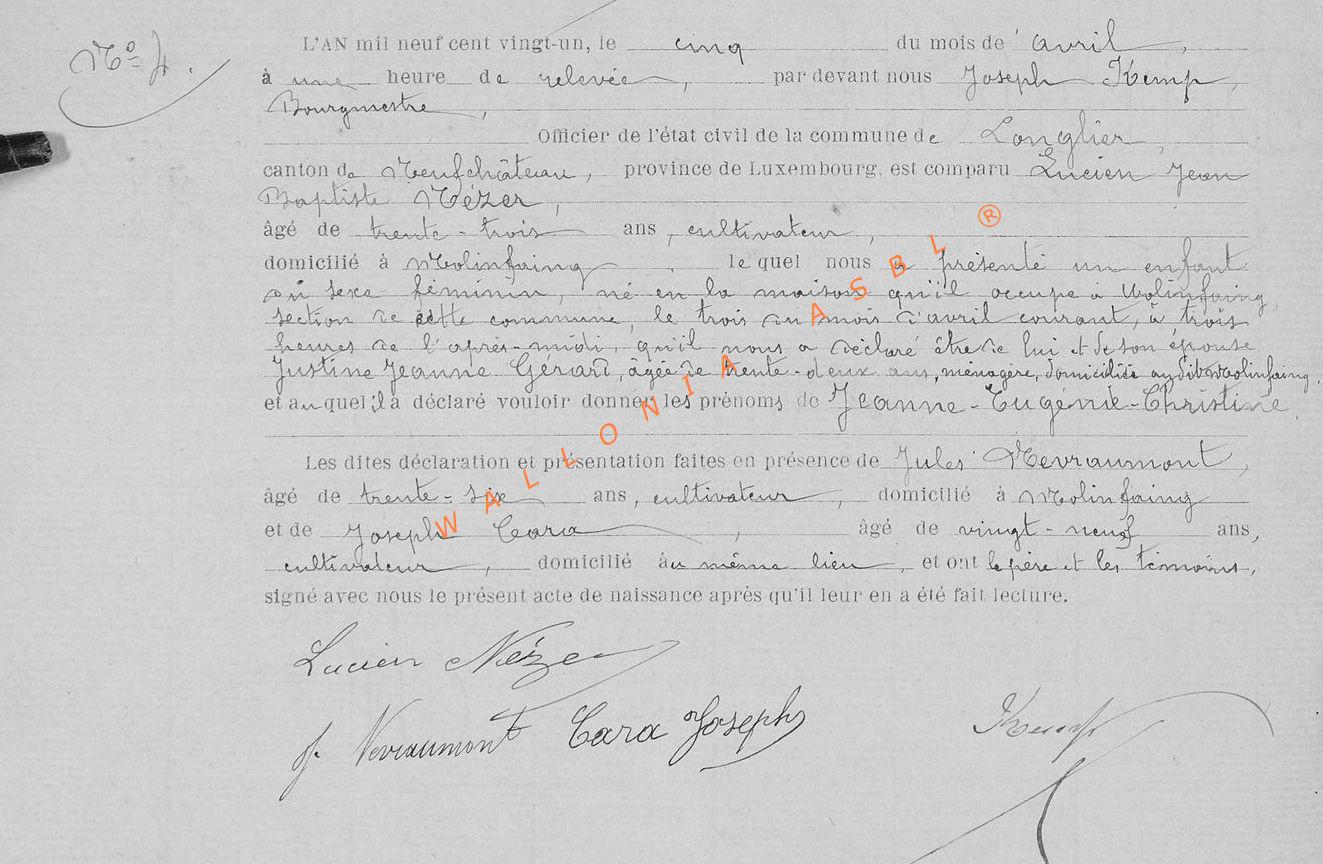 Nº 4.
L'AN mil neuf cent vingt-un, le cinq du mois de avril,
à une heure de relevée, par devant nous Joseph Kemp,
Bourgmestre,
Officier de l'état civil de la commune de Longlier,
canton de Neufchâteau, province de Luxembourg, est comparu Lucien Jean
Baptiste Nézer,
âgé de trente-trois ans, cultivateur,
domicilié à Molinfaing, le quel nous a présenté un enfant
du sexe féminin, né en la maison qu'il occupe à Molinfaing,
section de cette commune, le trois du mois d'avril courant, à trois
heures de l'après-midi, qu'il nous a déclaré être de lui et de son épouse
Justine Jeanne Gérard, âgée de trente-deux ans, ménagère, domiciliée audit Molinfaing,
et auquel il a déclaré vouloir donner les prénoms de Jeanne-Eugénie-Christine.
Les dites déclaration et présentation faites en présence de Jules Nevraumont,
âgé de trente-six ans, cultivateur, domicilié à Molinfaing
et de Joseph Cara, âgé de vingt-neuf ans,
cultivateur, domicilié au même lieu, et ont le père et les témoins,
signé avec nous le présent acte de naissance après qu'il leur en a été fait lecture.
WALLONIA ASBL ®
Lucien Nézer
J. Nevraumont Cara Joseph Kemp